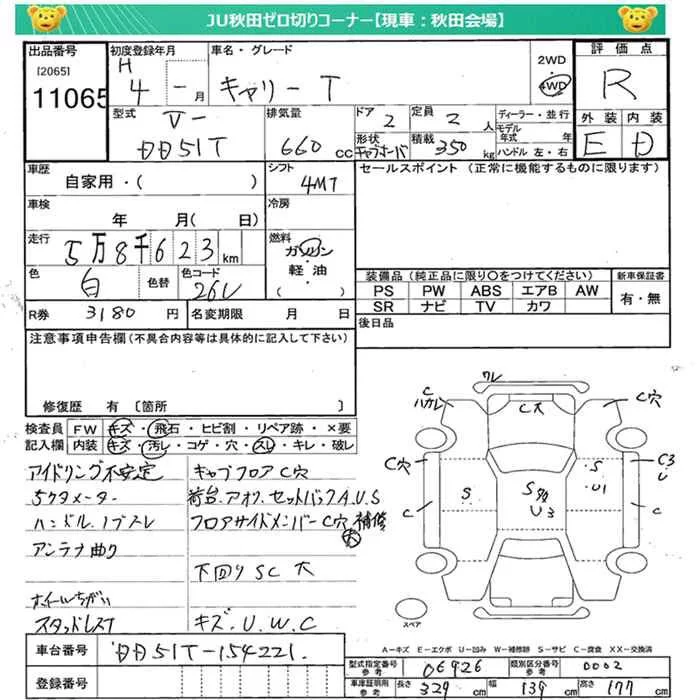 JU秋田ゼロ切りコーナー【現車:秋田会場】
出品番号
[2065]
11065
初度登録年月
H 4 - 月
車名・グレード
キャリー T
2WD
4WD
評価点
R
外装 内装
E D
型式
V-
DD51T
排気量
660 cc
ドア
2
定員
2 人
形状
積載
350 kg
ディーラー・並行
モデル年式 年
ハンドル 左・右
車歴
自家用・( )
シフト
4MT
セールスポイント(正常に機能するものに限ります)
車検
年 月( 日)
冷房
走行
5万8千623 km
燃料
ガソリン
軽・油
( )
色
白
色替
色コード
26U
装備品(純正品に限り〇をつけてください)
新車保証書
PS PW ABS エアB AW
有・無
SR ナビ TV カワ
R券 3180 円
名変期限 月 日
後日品
注意事項申告欄(不具合内容等は具体的に記入して下さい)
修復歴 有 〔箇所 〕
検査員記入欄
FW キズ・飛石・ヒビ割・リペア跡・×要
内装 キズ・汚レ・コゲ・穴・スレ・キレ・破レ
アイドリング不安定
5ケタメーター
ハンドル.ノブスレ
アンテナ曲り
ホイールちがい
スタッドレス1
キャブフロアC穴
荷台.アオリ.セットバックA.U.S
フロアサイドメンバーC穴補修大
下回りSC大
キズ.U.W.C
ワレ
C
ハガレ
C大
C穴
C穴
C3
U
S
S
U1
S多
U3
C
C
スペア
A-キズ E-エクボ U-凹み W-補修跡 S-サビ C-腐食 XX-交換済
車台番号
DD51T-154221.
登録番号
型式指定番号
参考
06926
類別区分番号
参考
0002
車庫証明用
参考
長さ 329 cm
幅 139 cm
高さ 177 cm